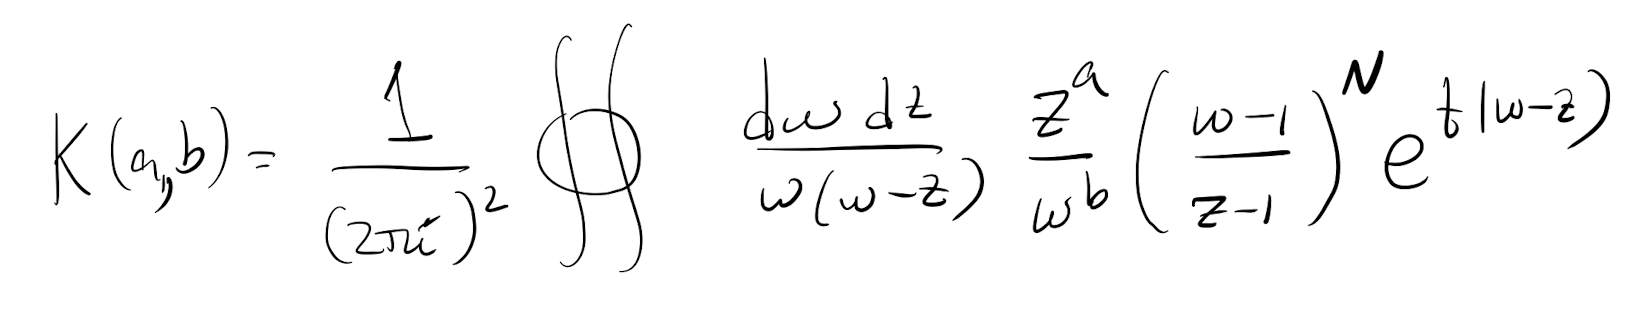 K(a,b) = \frac{1}{(2\pi i)^2} \oiint \frac{dw dz}{w(w-z)} \frac{z^a}{w^b} \left(\frac{w-1}{z-1}\right)^N e^{t(w-z)}